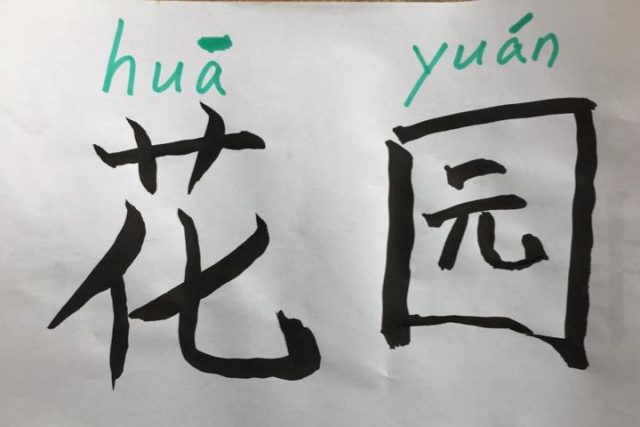 huā yuán
花园